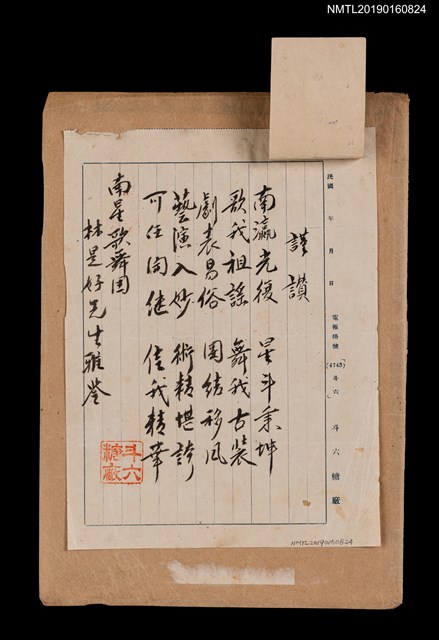 NMTL20190160824
民國 年 月 日 電報掛號 (4743) 斗六 斗六糖廠
謹讚
南瀛光復 星斗象坤
歌我祖謠 舞我古裝
劇表昌俗 團結移風
藝演入妙 術精堪誇
可任同继 佳我精華
南星歌舞團
林是好先生雅鑒
斗六糖廠
NMTL20190160824